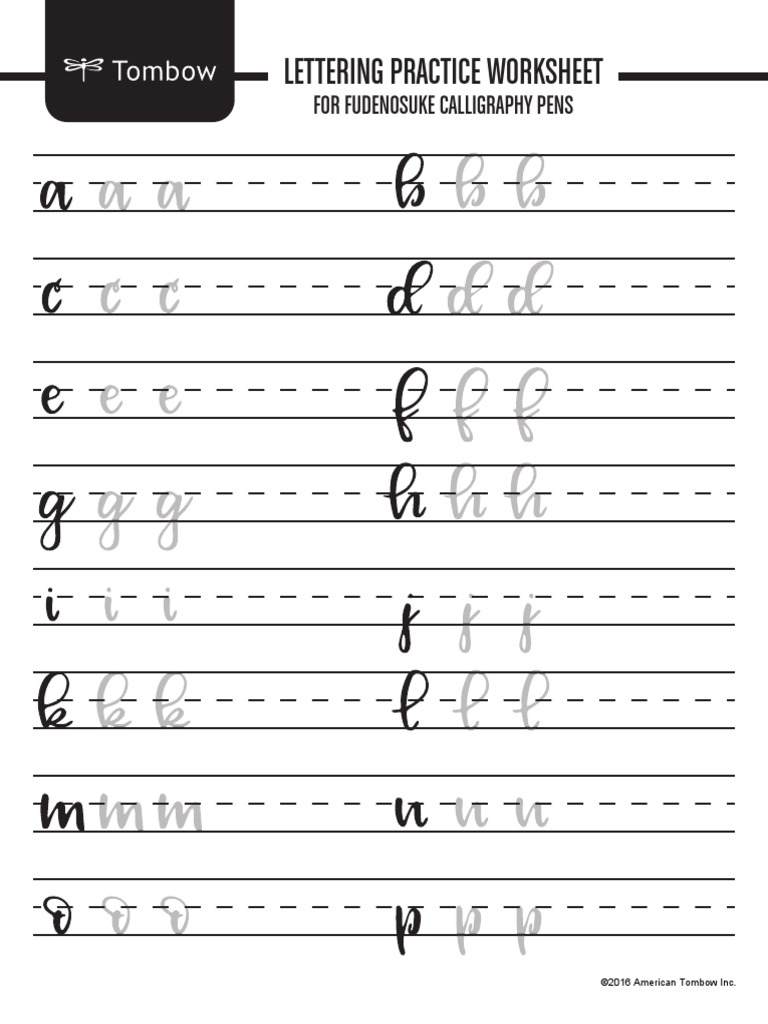 Tombow
LETTERING PRACTICE WORKSHEET
FOR FUDENOSUKE CALLIGRAPHY PENS
a a a b b b
c c c d d d
e e e f f f
g g g h h h
i i i j j j
k k k l l l
m m m n n n
o o o p p p
©2016 American Tombow Inc.